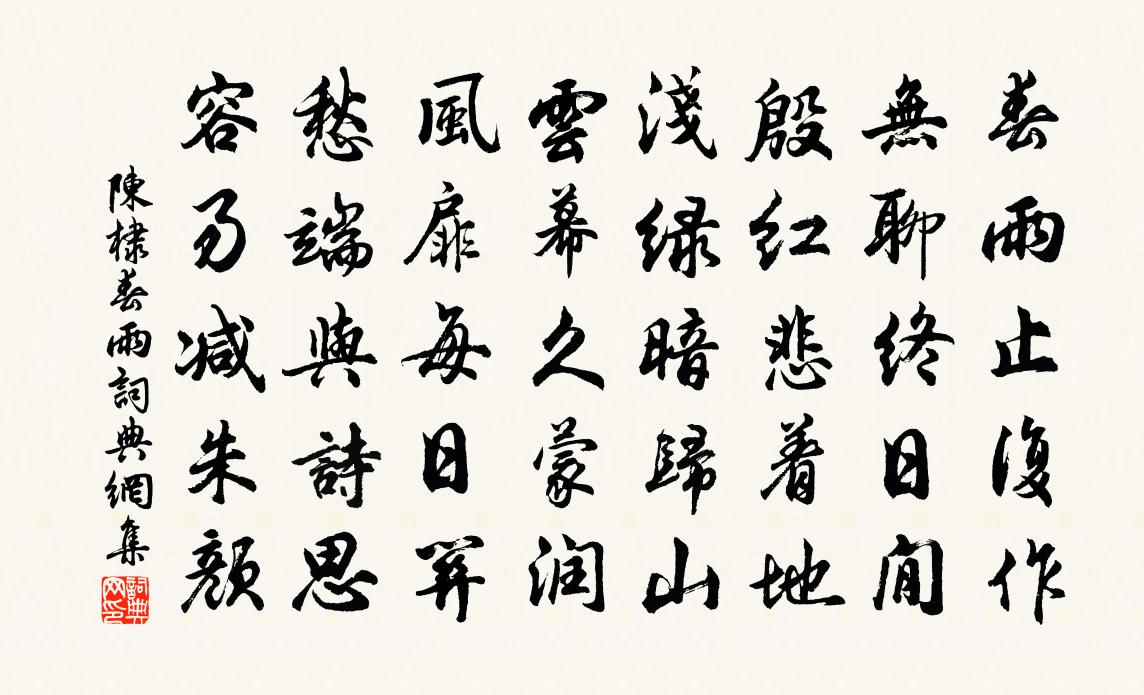 春雨止復作
無聊終日閒
殷红悲着地
淺緑暗歸山
雲幕久蒙润
風扉每日關
愁端與詩思
容易减朱顔
陳棣春雨詞典網集
詞典网印